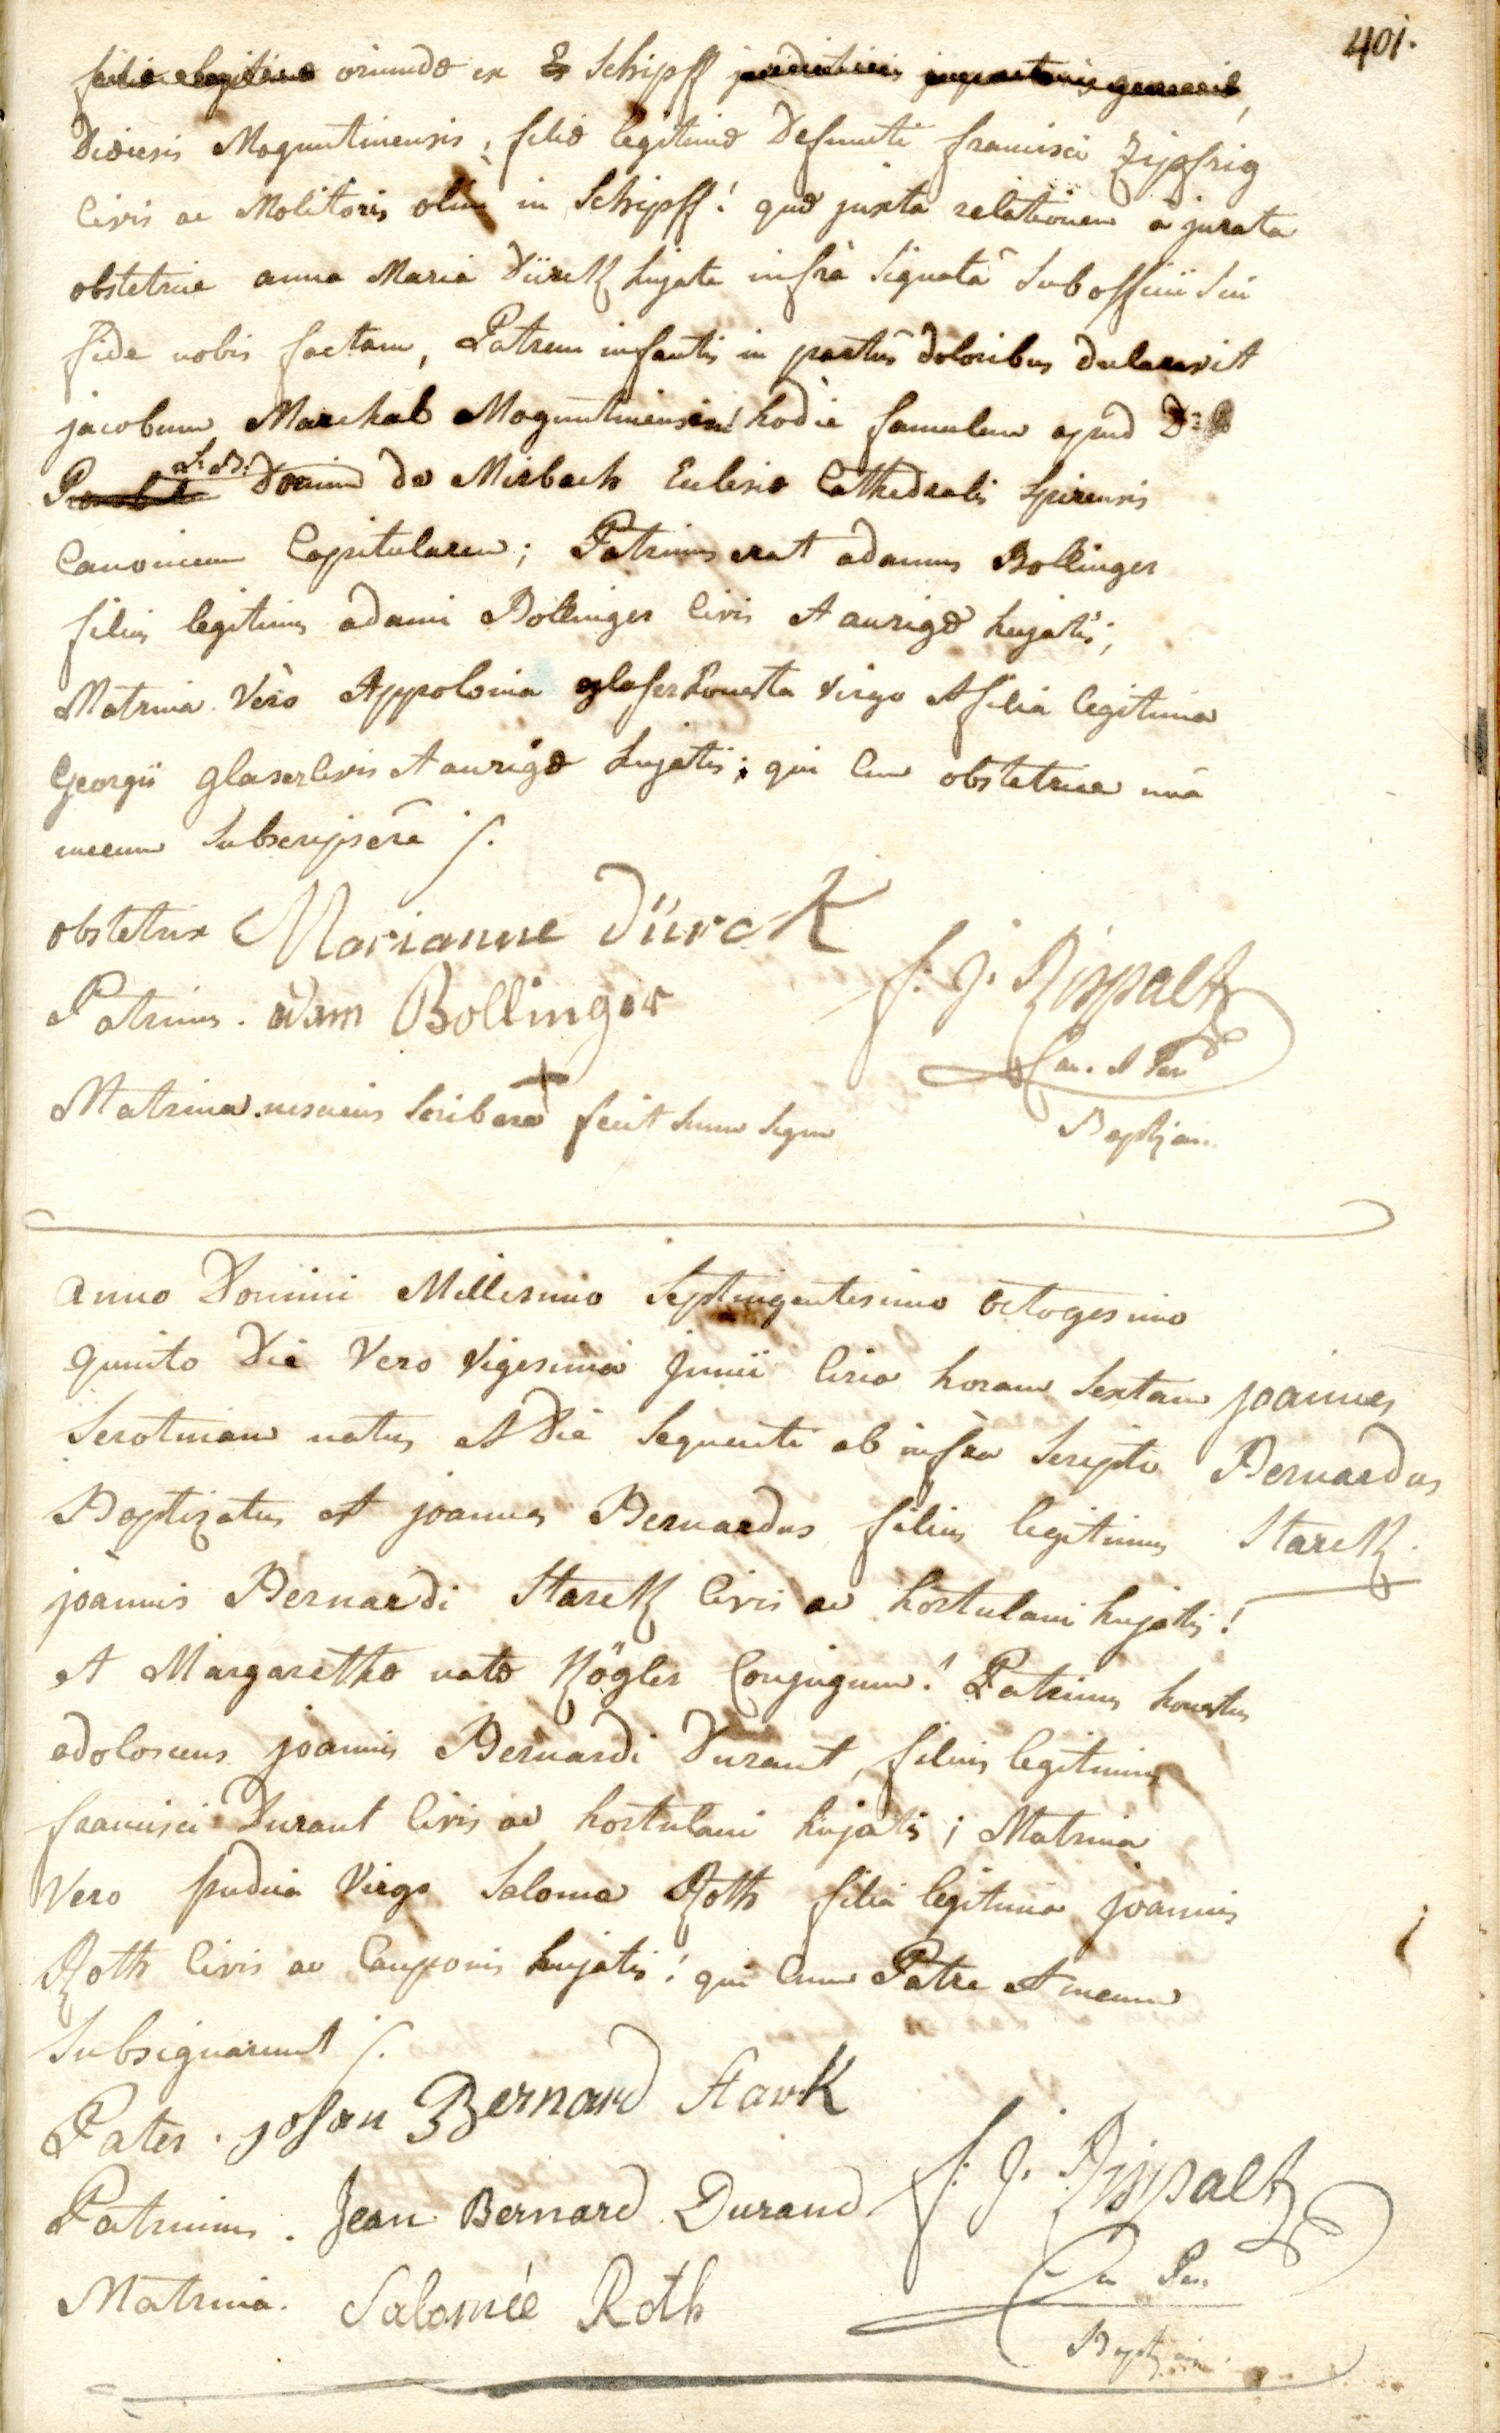 401.
filiæ legitimæ oriundæ ex Schipff
Dioicesis Moguntinensis, filiæ legitimæ Defuncti francisci Zipfrig
Civis ac Molitoris olim in Schipff! quæ juxta relationem à jurata
obstetrice anna Maria Dürck hujate infrà signatâ sub officii sui
fide nobis factam, Patrem infantis in partûs doloribus declaravit
jacobum Marchal Moguntinensem! hodie famulum apud D:
Domino de Mirbach Eclesiæ Cathedralis Spirensis
Canonicum Capitularem; Patrinus erat adamus Bollinger
filius legitimus adami Bollinger Civis et aurigæ hujatis;
Matrina Vero Appolonia glaser honesta virgo et filia legitima
Georgii glaser Civis et aurigæ hujatis; qui Cum obstetrice unâ
mecum Subscripsêre /.
obstetrix Marianne Dürck
Patrinus. adam Bollinger
f: J: Rispaltz
Can. et Par
Matrina nesciens Scribere + fecit suum signum
Baptizans
anno Domini Millesimo Septingentesimo octogesimo
quinto Die Vero Vigesima Junii Circa horam Sextam
Serotinam natus et Die Sequente ab infra Scripto
Baptizatus et joannes Bernardus filius legitimus
joannes
Bernardus
Starck
joannis Bernardi Starck Civis ac hortulani hujatis!
et Margarethæ natæ Kögler Conjugum! Patrinus honestus
adolescens joannis Bernardi Durant, filius legitimus
francisci Durant Civis ac hortulani hujatis; Matrina
Vero pudica Virgo Salome Roth filia legitima joannis
Roth Civis ac Cauponis hujatis! qui Cum Patre et mecum
Subsignarunt /.
Pater. johan Bernard Stark
Patrinus. Jean Bernard Durand
f: J: Rispaltz
Can Par
Matrina. Salomée Roth
Baptizans